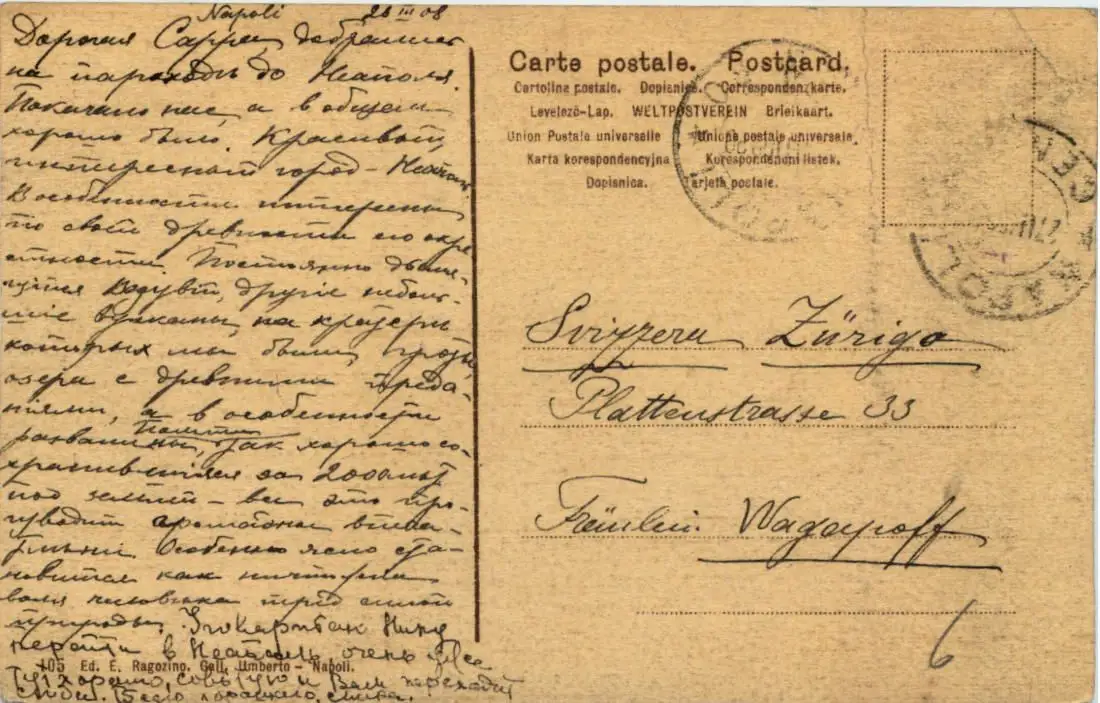 Napoli 26 III 08
Дорогая Сарра, добрались
на пароходѣ до Неаполя.
Покачало нас, а в общем
хорошо было. Красивый,
интересный город - Неаполь
В особенности интересны
по своей древности его окре
стности. Постоянно дымя-
щийся Везувий, другіе неболь-
шіе вулканы, на кратерѣ
которых мы были, гроты,
озера с древними преда-
ніями, а в особенности
развалины Помпеи, так хорошо со-
хранившіяся за 2000 лѣт
под землей - все это про-
изводит громадное впеча-
тлѣніе. Особенно ясно ста-
новится как ничтожна
воля человѣка пред силой
природы.
перейти в Неаполь, очень уж
тут хорошо, совѣтую и Вам переходить
сюда. Всего хорошего,
105 Ed. E. Ragozino. Gall. Umberto - Napoli.
Carte postale. Postcard.
Cartolina postale. Dopisnice. Correspondenzkarte.
Levelezö-Lap. WELTPOSTVEREIN Briefkaart.
Union Postale universelle Unione postale universale
Karta korespondencyjna Korespondencni listek.
Dopisnica. Tarjeta postale.
NAPOLI
Svizzera Zürigo
Plattenstrasse 33
Fräulein Wagapoff
6